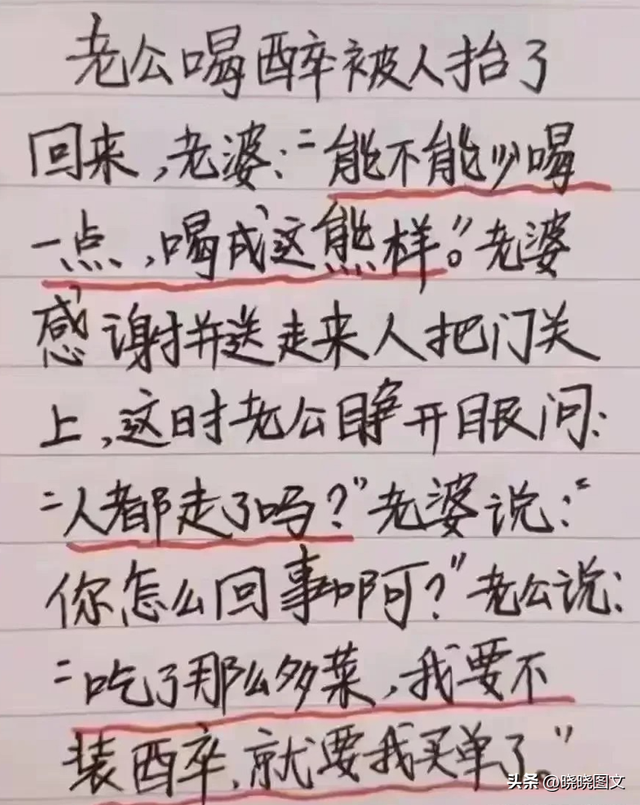 老公喝醉被人抬了
回来,老婆:“能不能少喝
一点,喝成这熊样”。老婆
感谢并送走来人把门关
上,这时老公睁开眼问:
“人都走了吗?”老婆说:“
你怎么回事啊?”老公说:
“吃了那么多菜,我要不
装醉,就要我买单了。”
头条 @晓晓图文